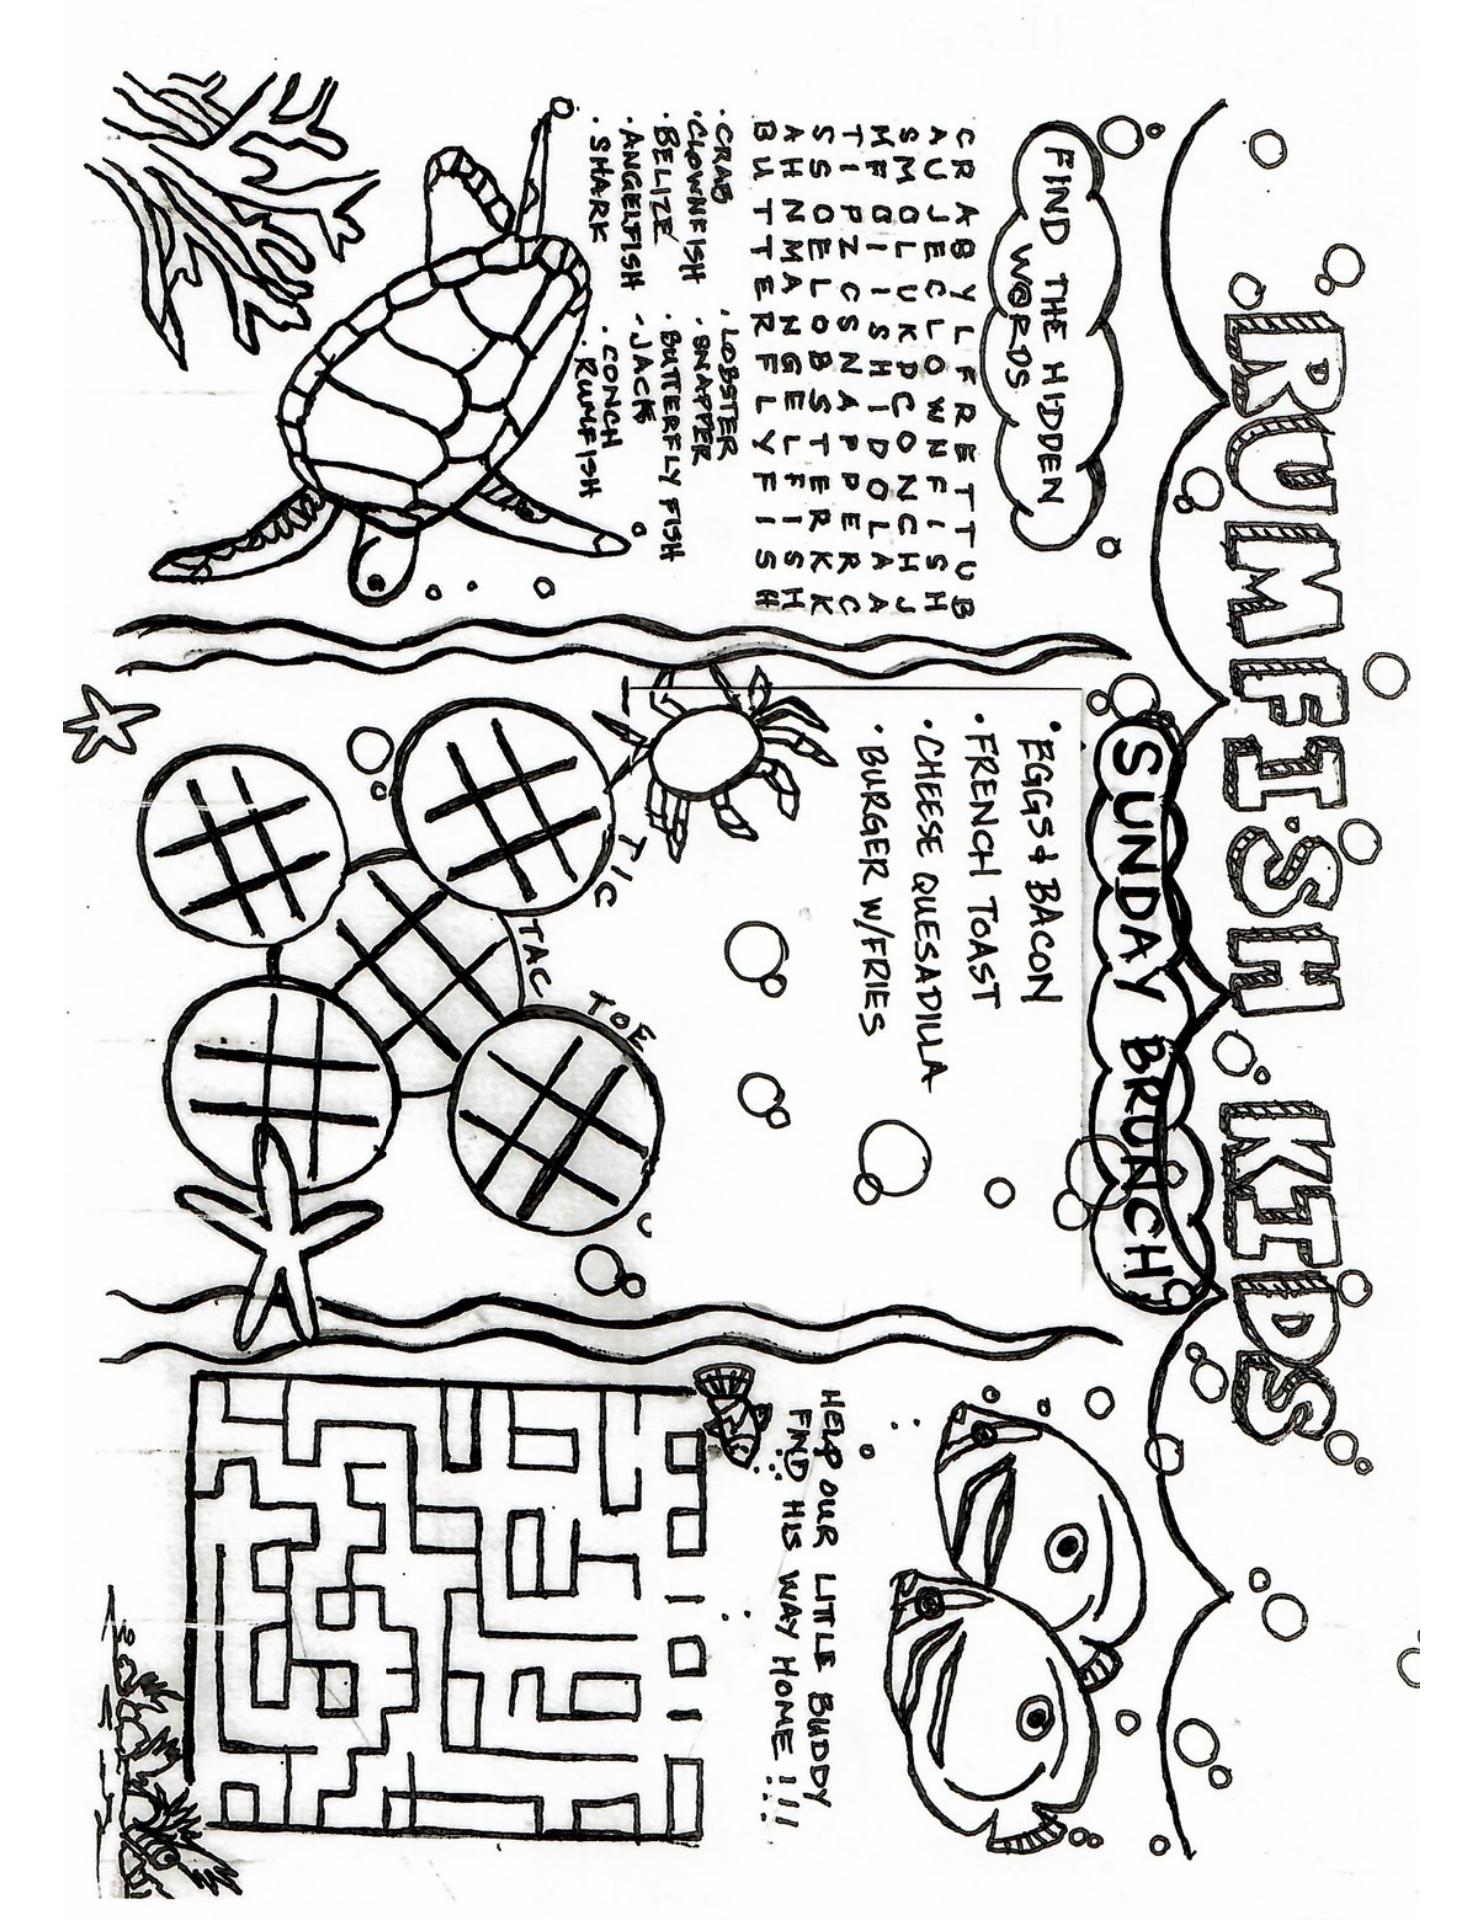 RUMFISH KIDS
FIND THE HIDDEN
WORDS
C R A B Y L F R E T T U B
A U J E C L O W N F I S H
S M O L U K P C O N C H J
M F O I I S H I D O L A A
T I P Z C S N A P P E R C
S S O E L O B S T E R K K
A H N M A N G E L F I S H
B U T T E R F L Y F I S H
• CRAB
• CLOWNFISH
• BELIZE
• ANGELFISH
• SHARK
• LOBSTER
• SNAPPER
• BUTTERFLY FISH
- JACK
• CONCH
• RUMFISH
SUNDAY BRUNCH
• EGGS & BACON
• FRENCH TOAST
• CHEESE QUESADILLA
• BURGER W/FRIES
TIC
TAC
TOE
HELP OUR LITTLE BUDDY
FIND HIS WAY HOME !!!!